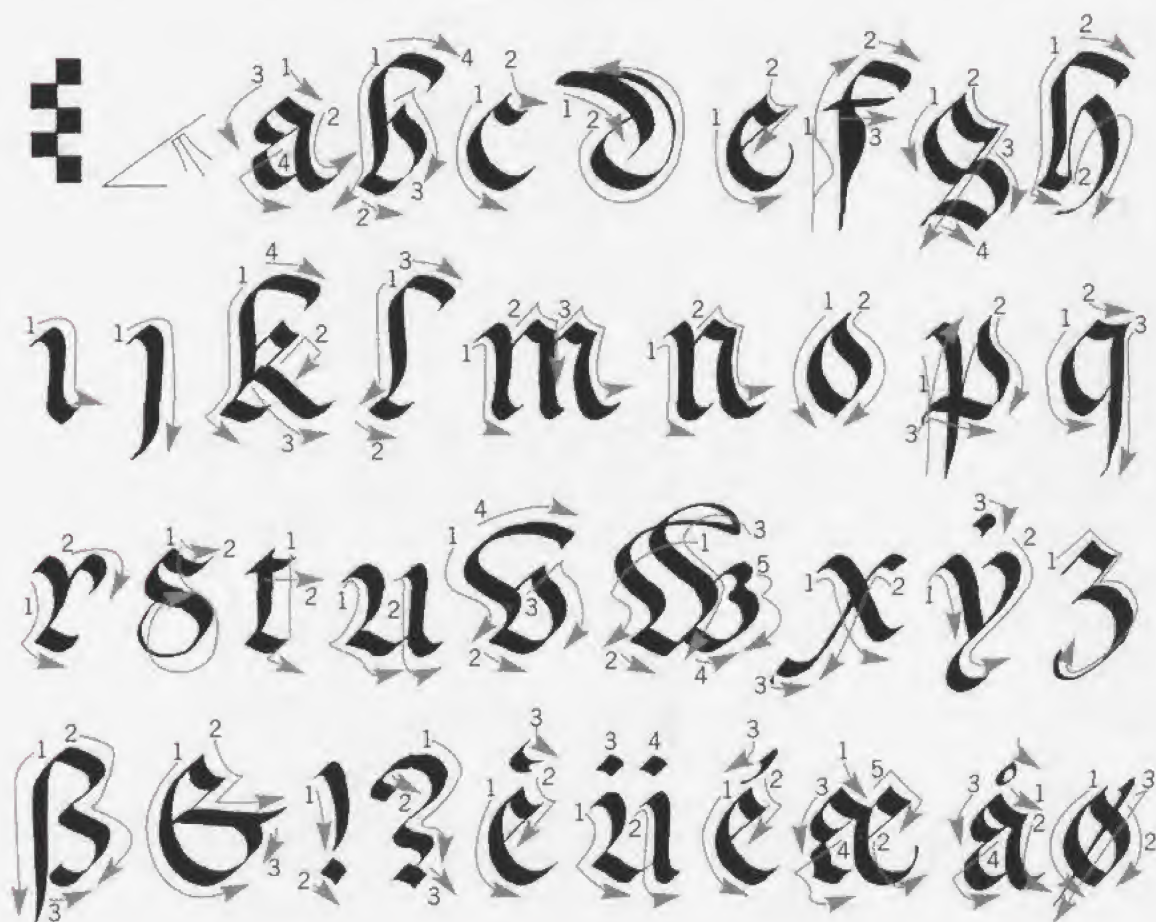 a b c d e f g h
ı ȷ k l m n o p q
r s t u v w x ẏ z
ß & ! ? è ü é æ å ø